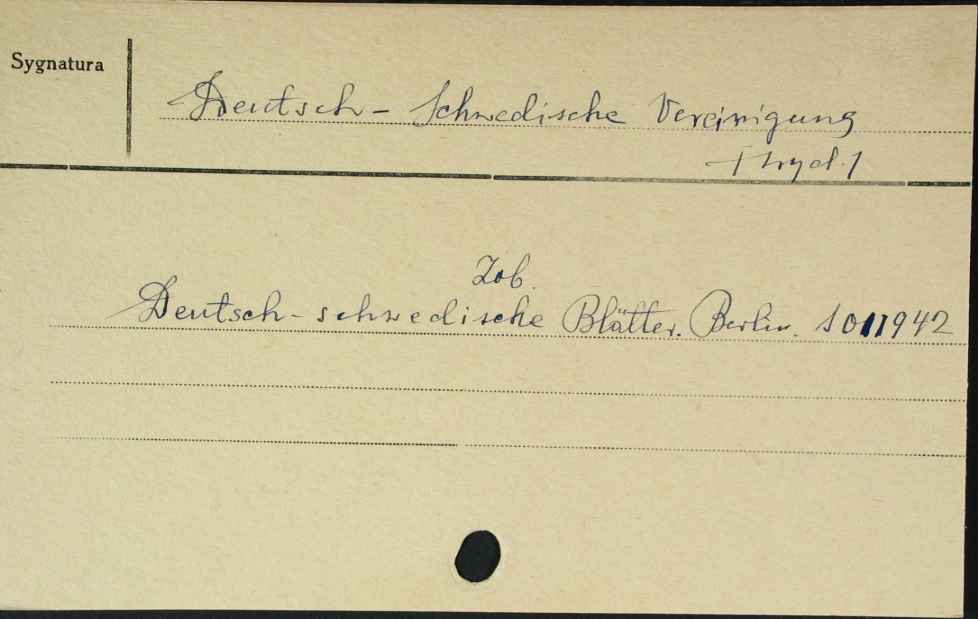 Sygnatura
Deutsch - Schwedische Vereinigung
/wyd./
Zob.
Deutsch-schwedische Blätter. Berlin. 1942